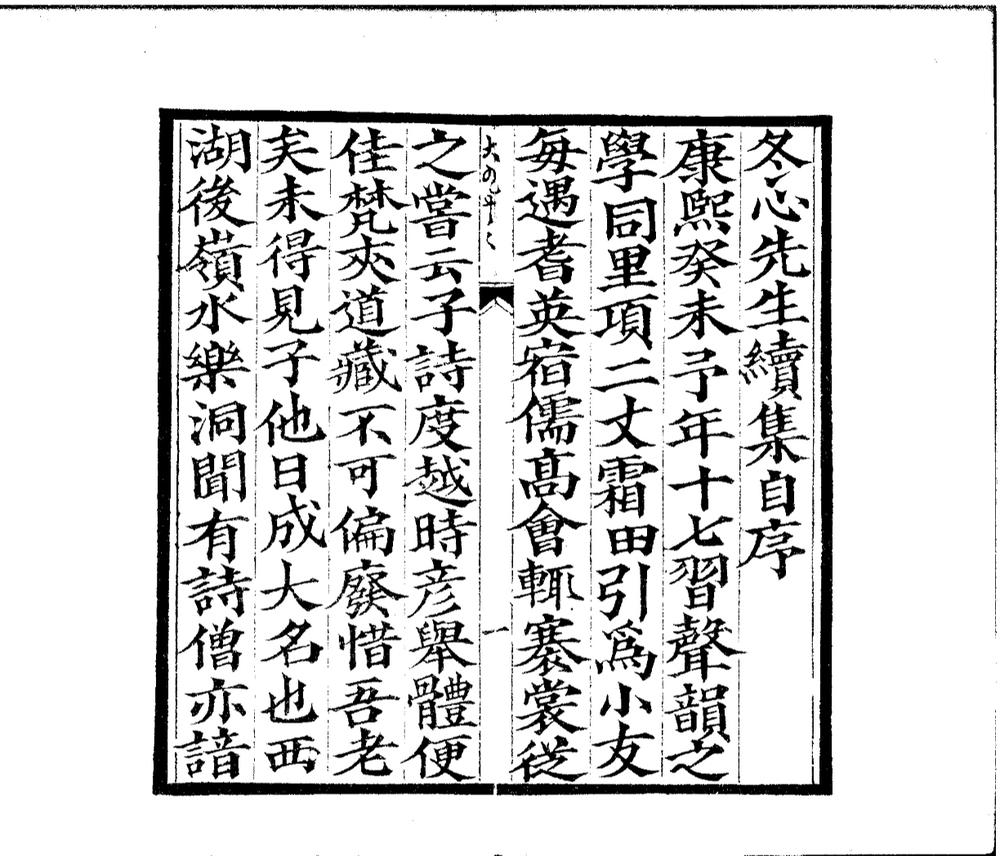 冬心先生續集自序
康熙癸未予年十七習聲韻之
學同里項二丈霜田引為小友
每遇耆英宿儒高會輒褰裳從
一
之嘗云子詩度越時彦舉體便
佳梵夾道藏不可偏廢惜吾老
矣未得見子他日成大名也西
湖後嶺水樂洞聞有詩僧亦諳